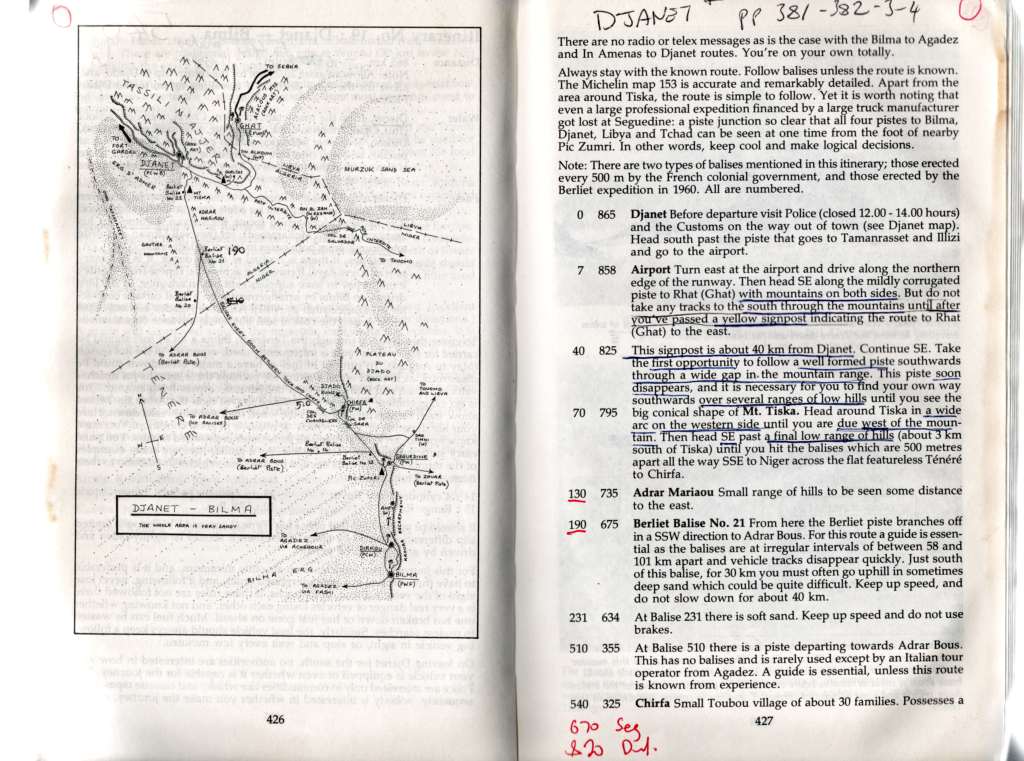 TO SEBHA
TASSILI
AJJER
GHAT
TO FORT GARDEL
DJANET
ERG D'ADMER
LIBYA
ALGERIA
MURZUK SAND SEA
Berliet Balise No 22
MT TISKA
ADRAR MARIAOU
LIBYA
NIGER
COL DE SALVADOR
TO TOUMMO
GAUTIER MOUNTAINS
Berliet Balise No 21
190
ALGERIA
NIGER
Berliet Balise No 20
TO ADRAR BOUS
(Berliet Piste)
PLATEAU
DU
DJADO
(ROCK ART)
TÉNÉRÉ
DJADO RUINS
TO TOUMMO AND LIBYA
CHIRFA
TO ADRAR BOUS
(NO BALISES)
510
COL DE SARA
TO ADRAR BOUS
(Berliet Piste)
SEGUEDINE
PIC ZUMRI
TO ZOUAR
(Berliet Piste)
DJANET - BILMA
THE WHOLE AREA IS VERY SANDY
TO AGADEZ
VIA ACHEGOUR
DIRKOU
BILMA ERG
TO AGADEZ
VIA FACHI
BILMA
426
DJANET
pp 381-382-3-4
There are no radio or telex messages as is the case with the Bilma to Agadez
and In Amenas to Djanet routes. You're on your own totally.
Always stay with the known route. Follow balises unless the route is known.
The Michelin map 153 is accurate and remarkably detailed. Apart from the
area around Tiska, the route is simple to follow. Yet it is worth noting that
even a large professional expedition financed by a large truck manufacturer
got lost at Seguedine: a piste junction so clear that all four pistes to Bilma,
Djanet, Libya and Tchad can be seen at one time from the foot of nearby
Pic Zumri. In other words, keep cool and make logical decisions.
Note: There are two types of balises mentioned in this itinerary; those erected
every 500 m by the French colonial government, and those erected by the
Berliet expedition in 1960. All are numbered.
0 865 Djanet Before departure visit Police (closed 12.00 - 14.00 hours)
and the Customs on the way out of town (see Djanet map).
Head south past the piste that goes to Tamanrasset and Illizi
and go to the airport.
7 858 Airport Turn east at the airport and drive along the northern
edge of the runway. Then head SE along the mildly corrugated
piste to Rhat (Ghat) with mountains on both sides. But do not
take any tracks to the south through the mountains until after
you've passed a yellow signpost indicating the route to Rhat
(Ghat) to the east.
40 825 This signpost is about 40 km from Djanet. Continue SE. Take
the first opportunity to follow a well formed piste southwards
through a wide gap in the mountain range. This piste soon
disappears, and it is necessary for you to find your own way
southwards over several ranges of low hills until you see the
70 795 big conical shape of Mt. Tiska. Head around Tiska in a wide
arc on the western side until you are due west of the moun-
tain. Then head SE past a final low range of hills (about 3 km
south of Tiska) until you hit the balises which are 500 metres
apart all the way SSE to Niger across the flat featureless Ténéré
to Chirfa.
130 735 Adrar Mariaou Small range of hills to be seen some distance
to the east.
190 675 Berliet Balise No. 21 From here the Berliet piste branches off
in a SSW direction to Adrar Bous. For this route a guide is essen-
tial as the balises are at irregular intervals of between 58 and
101 km apart and vehicle tracks disappear quickly. Just south
of this balise, for 30 km you must often go uphill in sometimes
deep sand which could be quite difficult. Keep up speed, and
do not slow down for about 40 km.
231 634 At Balise 231 there is soft sand. Keep up speed and do not use
brakes.
510 355 At Balise 510 there is a piste departing towards Adrar Bous.
This has no balises and is rarely used except by an Italian tour
operator from Agadez. A guide is essential, unless this route
is known from experience.
540 325 Chirfa Small Toubou village of about 30 families. Possesses a
427
670 Seg
820 Dirk.